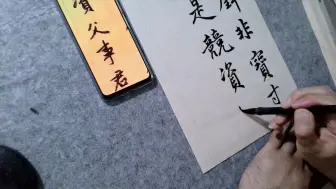 非寶寸
是競資
資父事君